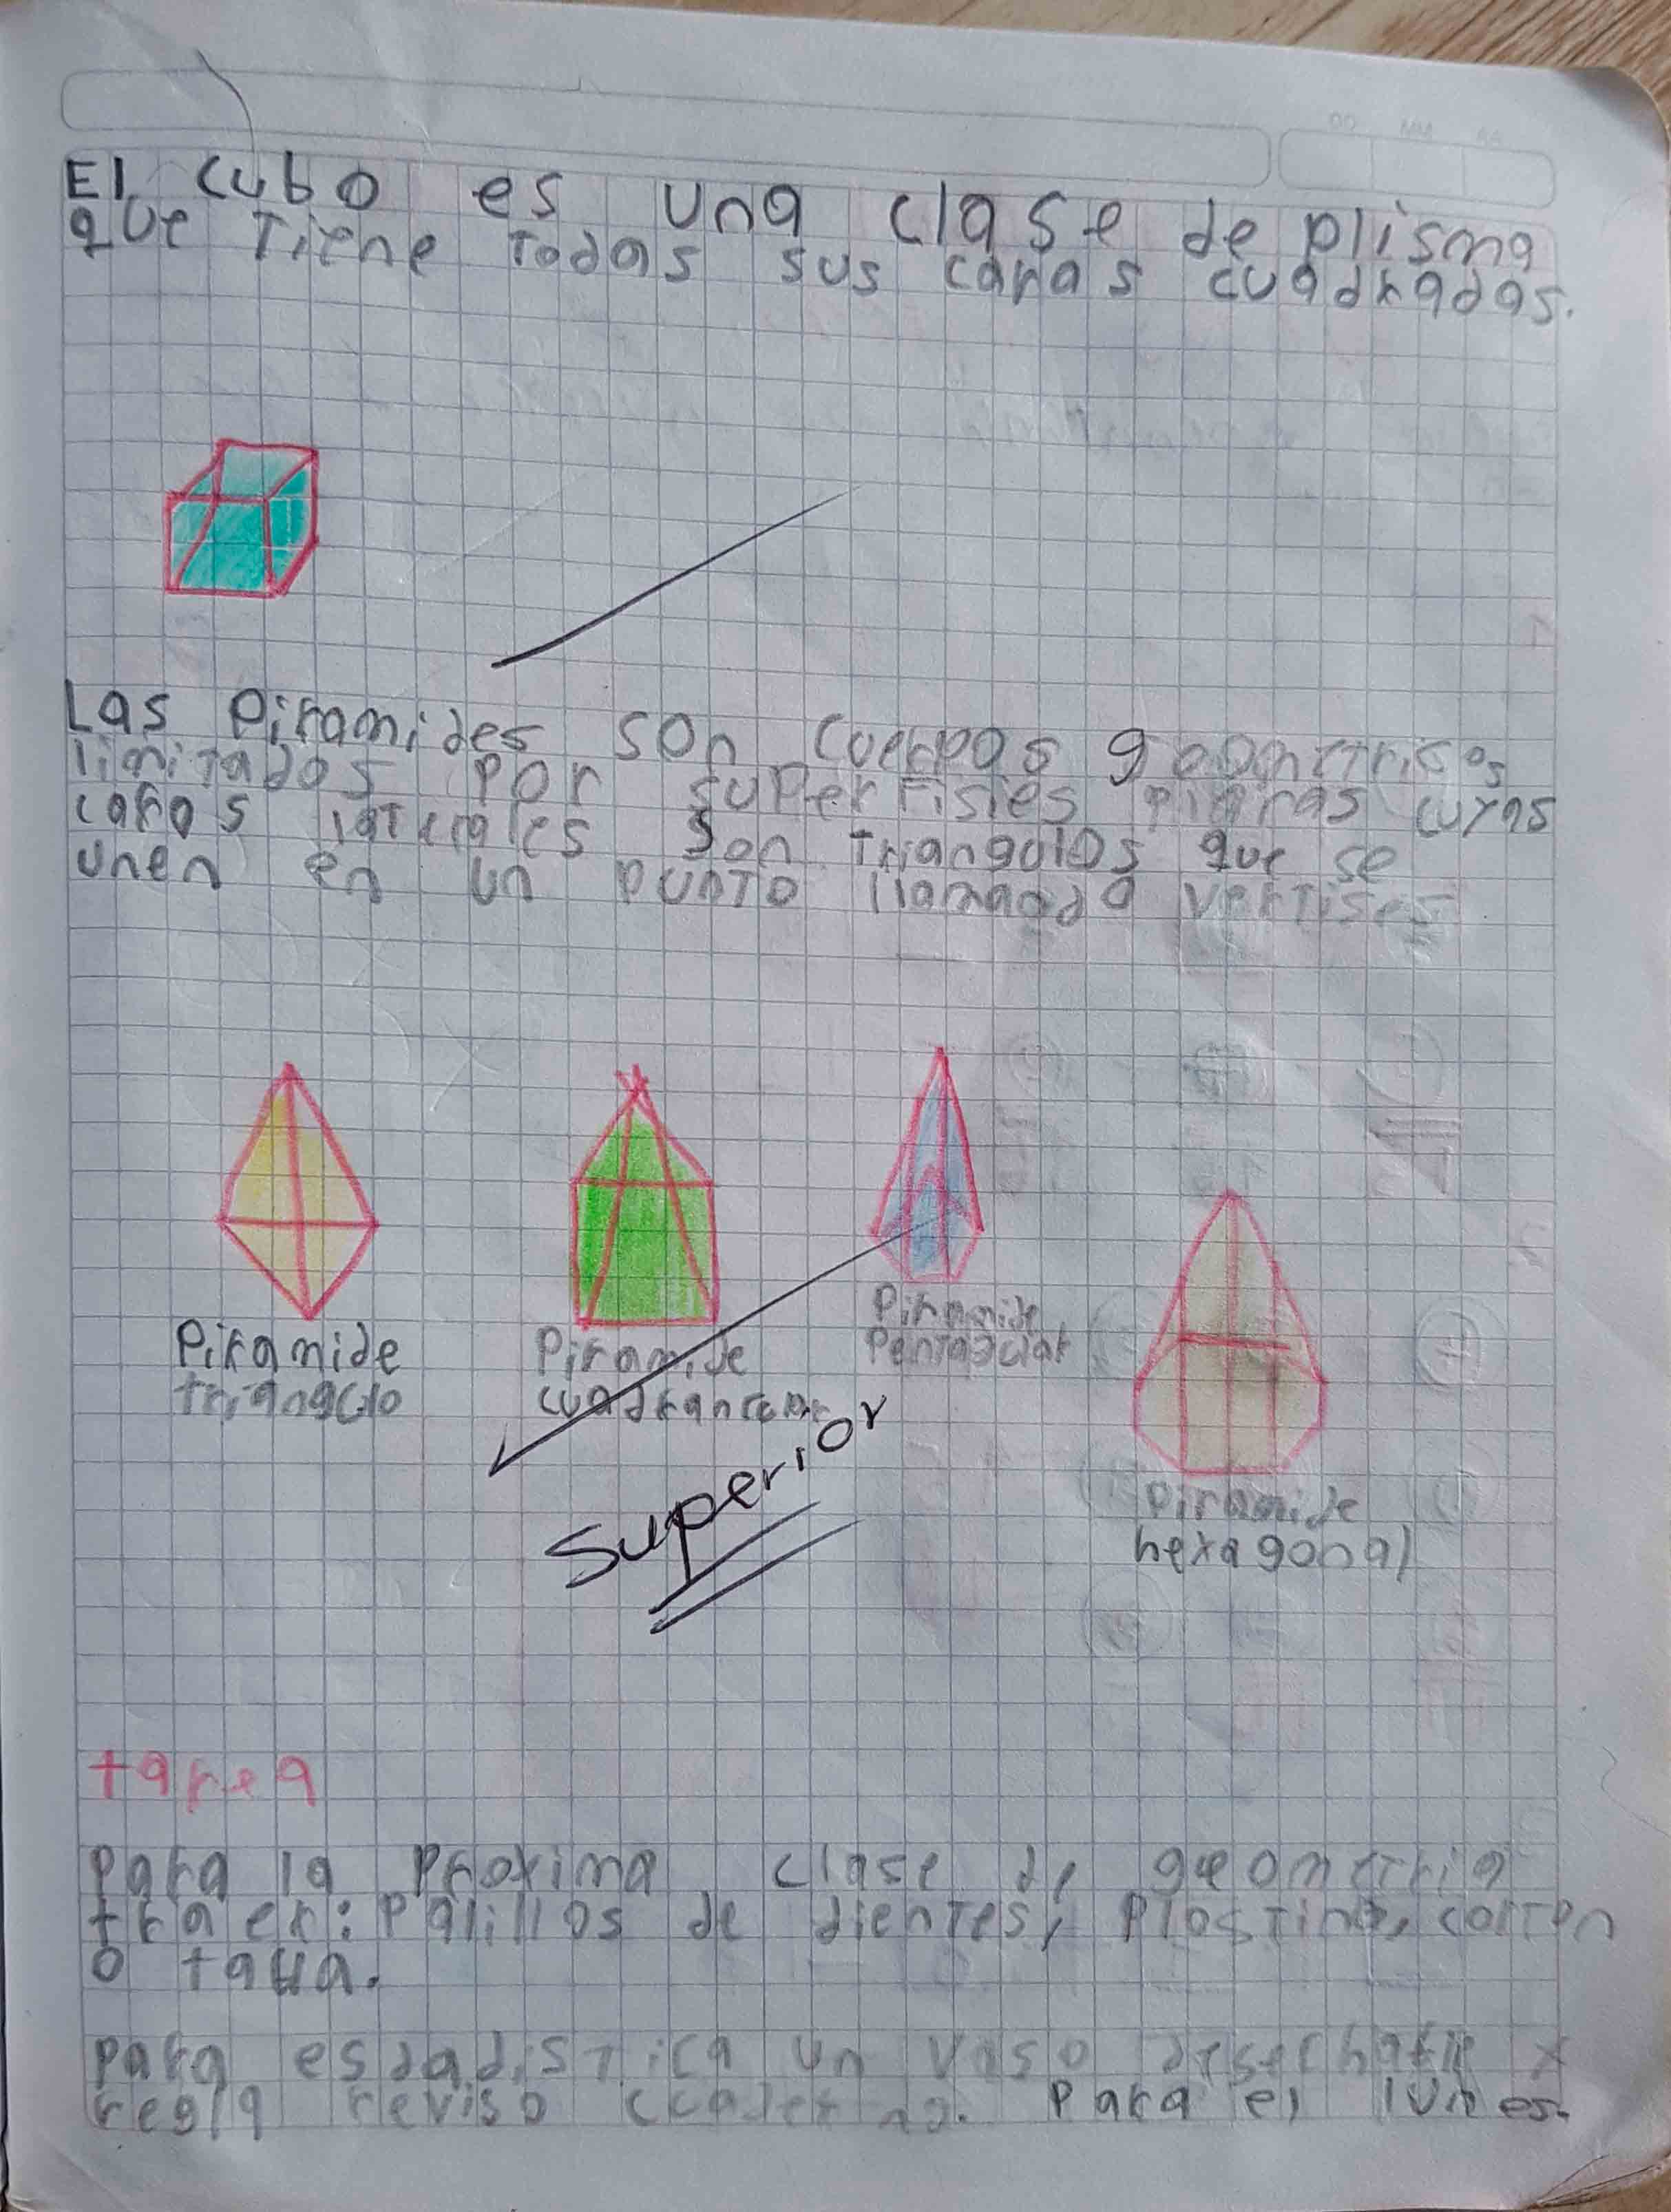 El cubo es una clase de plisma
que tiene todas sus caras cuadradas.
Las Piramides son cuerpos
limitados por superfisies planas cuyas
caras laterales son triangulos que se
unen en un punto llamado vertises
Piramide
Piramide
Piramide
Piramide
hexagonal
Superior
tarea
Para la Proxima clase de geometria
traer: Palillos de dientes, Plastina, corton
o
Para esdadistica un vaso
regla reviso Para el lunes.